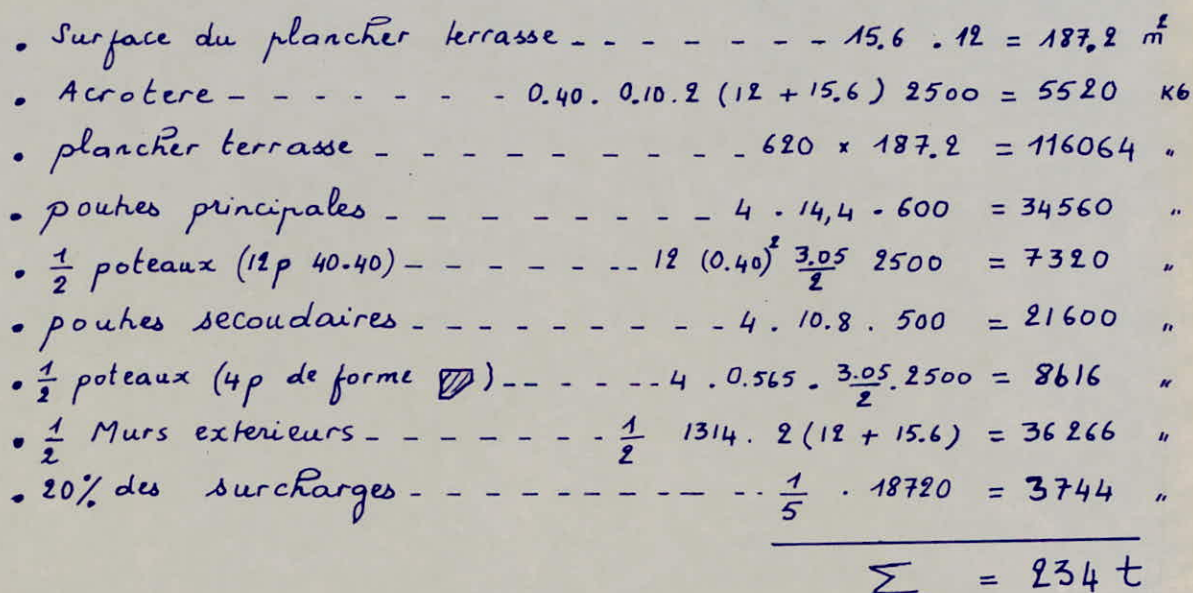 • Surface du plancher terrasse - - - - - - - 15.6 . 12 = 187.2 m²
• Acrotere - - - - - - - 0.40. 0.10. 2 (12 + 15.6) 2500 = 5520 KG
• plancher terrasse - - - - - - - - - 620 × 187.2 = 116064 "
• poutres principales - - - - - - - - 4 . 14,4 . 600 = 34560 "
• 1/2 poteaux (12p 40.40) - - - - - - - 12 (0.40)² 3.05/2 2500 = 7320 "
• poutres secoudaires - - - - - - - - - 4 . 10.8 . 500 = 21600 "
• 1/2 poteaux (4p de forme ) - - - - - 4 . 0.565 . 3.05/2 . 2500 = 8616 "
• 1/2 Murs exterieurs - - - - - - - 1/2 1314. 2(12 + 15.6) = 36266 "
• 20% des surcharges - - - - - - - - - - 1/5 . 18720 = 3744 "
Σ = 234 t